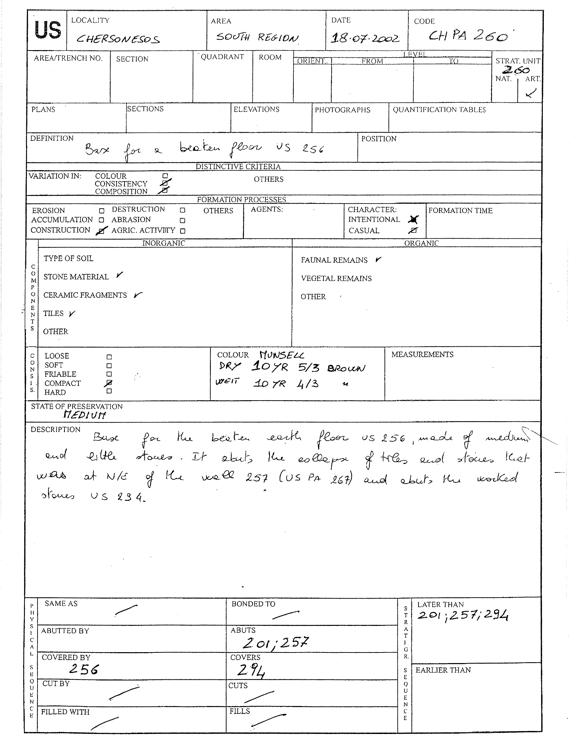 US
LOCALITY
CHERSONESOS
AREA
SOUTH REGION
DATE
18.07.2002
CODE
CH PA 260
AREA/TRENCH NO.
SECTION
QUADRANT
ROOM
LEVEL
ORIENT.
FROM
TO
STRAT. UNIT
260
NAT.
ART.
✓
PLANS
SECTIONS
ELEVATIONS
PHOTOGRAPHS
QUANTIFICATION TABLES
DEFINITION
Base for a beaten floor US 256
POSITION
DISTINCTIVE CRITERIA
VARIATION IN:
COLOUR
CONSISTENCY
COMPOSITION
OTHERS
FORMATION PROCESSES
EROSION
ACCUMULATION
CONSTRUCTION
DESTRUCTION
ABRASION
AGRIC. ACTIVITY
OTHERS
AGENTS:
CHARACTER:
INTENTIONAL
CASUAL
FORMATION TIME
COMPONENTS
INORGANIC
TYPE OF SOIL
STONE MATERIAL ✓
CERAMIC FRAGMENTS ✓
TILES ✓
OTHER
ORGANIC
FAUNAL REMAINS ✓
VEGETAL REMAINS
OTHER
CONSIS.
LOOSE
SOFT
FRIABLE
COMPACT
HARD
COLOUR MUNSELL
DRY 10YR 5/3 BROWN
WEIT 10YR 4/3 "
MEASUREMENTS
STATE OF PRESERVATION
MEDIUM
DESCRIPTION
Base for the beaten earth floor US 256, made of medium
and little stones. It abuts the collapse of tiles and stones that
was at N/E of the wall 257 (US PA 267) and abuts the worked
stones US 294.
PHYSICAL SEQUENCE
SAME AS
BONDED TO
ABUTTED BY
ABUTS
201; 257
COVERED BY
256
COVERS
294
CUT BY
CUTS
FILLED WITH
FILLS
STRATIGR. SEQUENCE
LATER THAN
201; 257; 294
EARLIER THAN